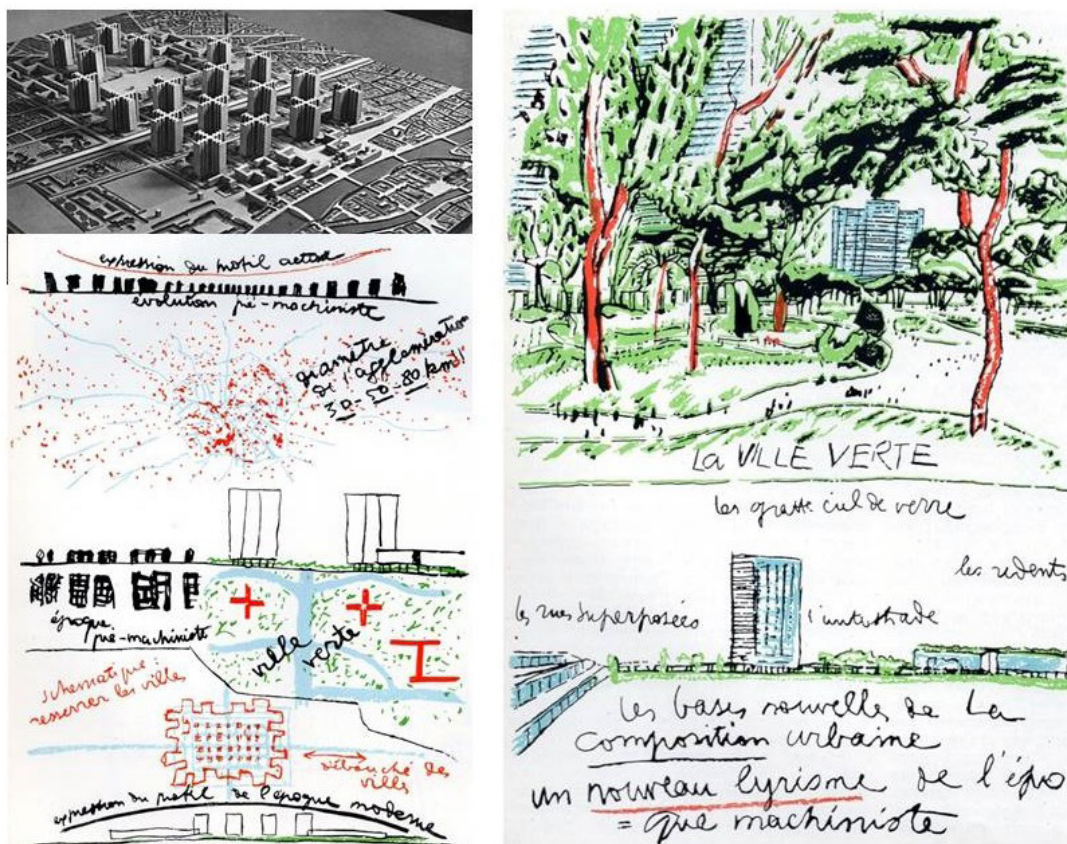 expression du profil actuel
évolution pré-machiniste
diamètre
de l'agglomération
30-50-80 km!!
époque
pré-machiniste
ville
verte
schématique
resserrer les villes
des
villes
expression du profil de l'époque moderne
La VILLE VERTE
les gratte ciel de verre
les redents
les rues superposées
l'autostrade
les bases nouvelles de la
composition urbaine
un nouveau lyrisme de l'épo
= que machiniste